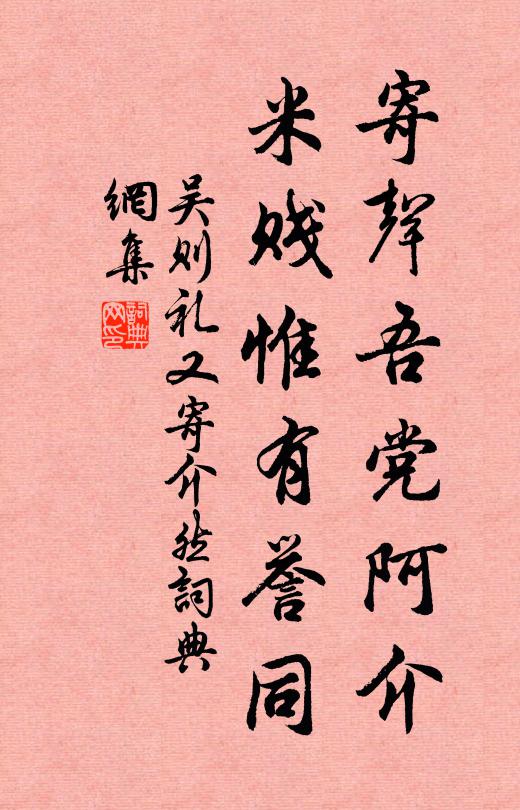 寄聲吾党阿介
米贱惟有誉同
吴则礼又寄介然詞典
網集
詞典
网印